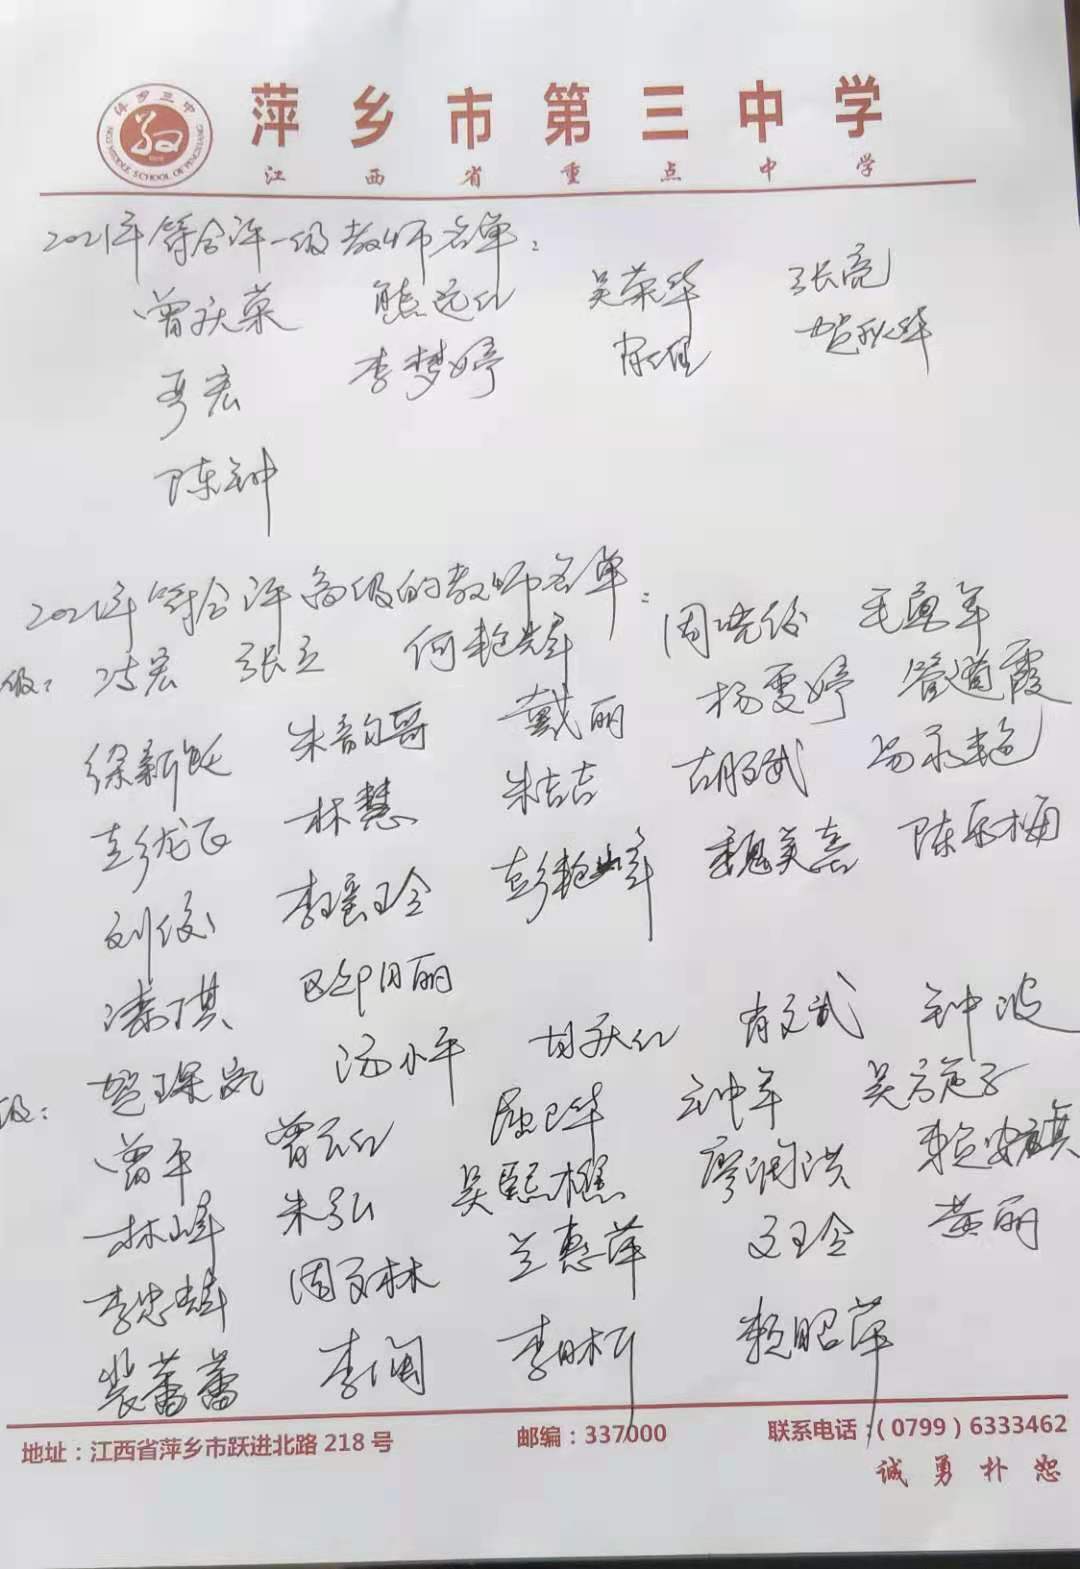 萍乡市第三中学
江西省重点中学
2021年符合评一级教师名单：
曾庆菜 熊远红 吴荣华 张亮
李梦婷 贺秋华
陈钟
2021年符合评高级的教师名单：
级： 张立 何艳辉 周晓俊 毛勇军
徐新跃 朱韵哥 戴丽 杨雯婷 管道霞
彭龙飞 林慧 朱吉吉 胡文武 易永艳
刘俊 李瑶玲 彭艳峰 魏美嘉 陈乐梅
漆琪 欧阳丽
级： 贺琛岚 汤小平 胡庆红 肖文武 钟波
曾平 曾云红 屈卫华 钟军 吴方芫子
林峰 朱弘 吴熙樵 廖润洪 赖安祺
李忠辉 周文林 兰惠萍 文玲 黄丽
裴蕾蕾 李闻 李昕 赖昭萍
地址：江西省萍乡市跃进北路 218 号 邮编：337000 联系电话：（0799）6333462
诚勇朴恕